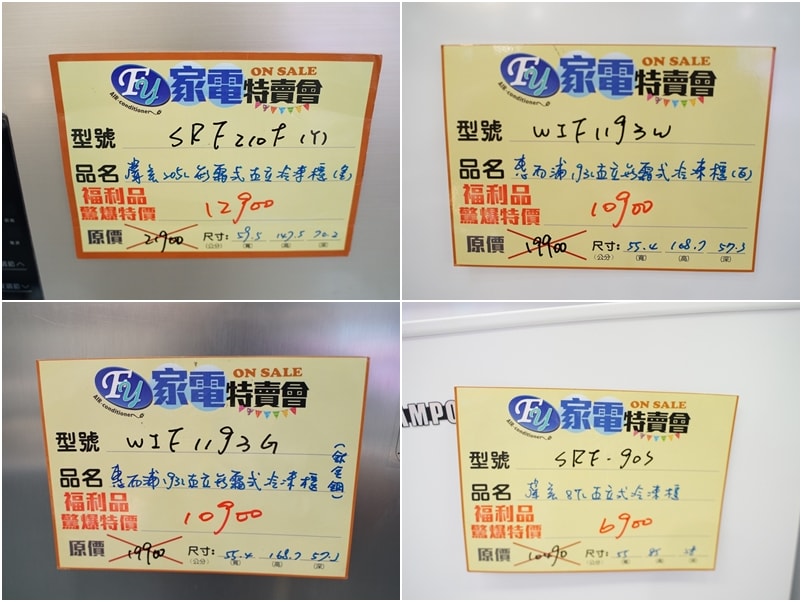 Fy 家電特賣會 ON SALE
AIR-conditioner
型號 SRF210F (Y)
品名 聲寶205L無霜式直立冷凍櫃
福利品
驚爆特價 12900
原價 21900 尺寸: 59.5 147.5 70.2
(公分) (寬) (高) (深)
Fy 家電特賣會 ON SALE
AIR-conditioner
型號 WIF1193W
品名 惠而浦193L直立無霜式冷凍櫃(白)
福利品
驚爆特價 10900
原價 19900 尺寸: 55.4 168.7 57.3
(公分) (寬) (高) (深)
Fy 家電特賣會 ON SALE
AIR-conditioner
型號 WIF1193G (鈦金鋼)
品名 惠而浦193L直立無霜式冷凍櫃
福利品
驚爆特價 10900
原價 19900 尺寸: 55.4 168.7 57.3
(公分) (寬) (高) (深)
AMPO
Fy 家電特賣會 ON SALE
AIR-conditioner
型號 SRF-90S
品名 聲寶87L直立式冷凍櫃
福利品
驚爆特價 6900
原價 10490 尺寸: 55 85
(公分) (寬) (高) (深)